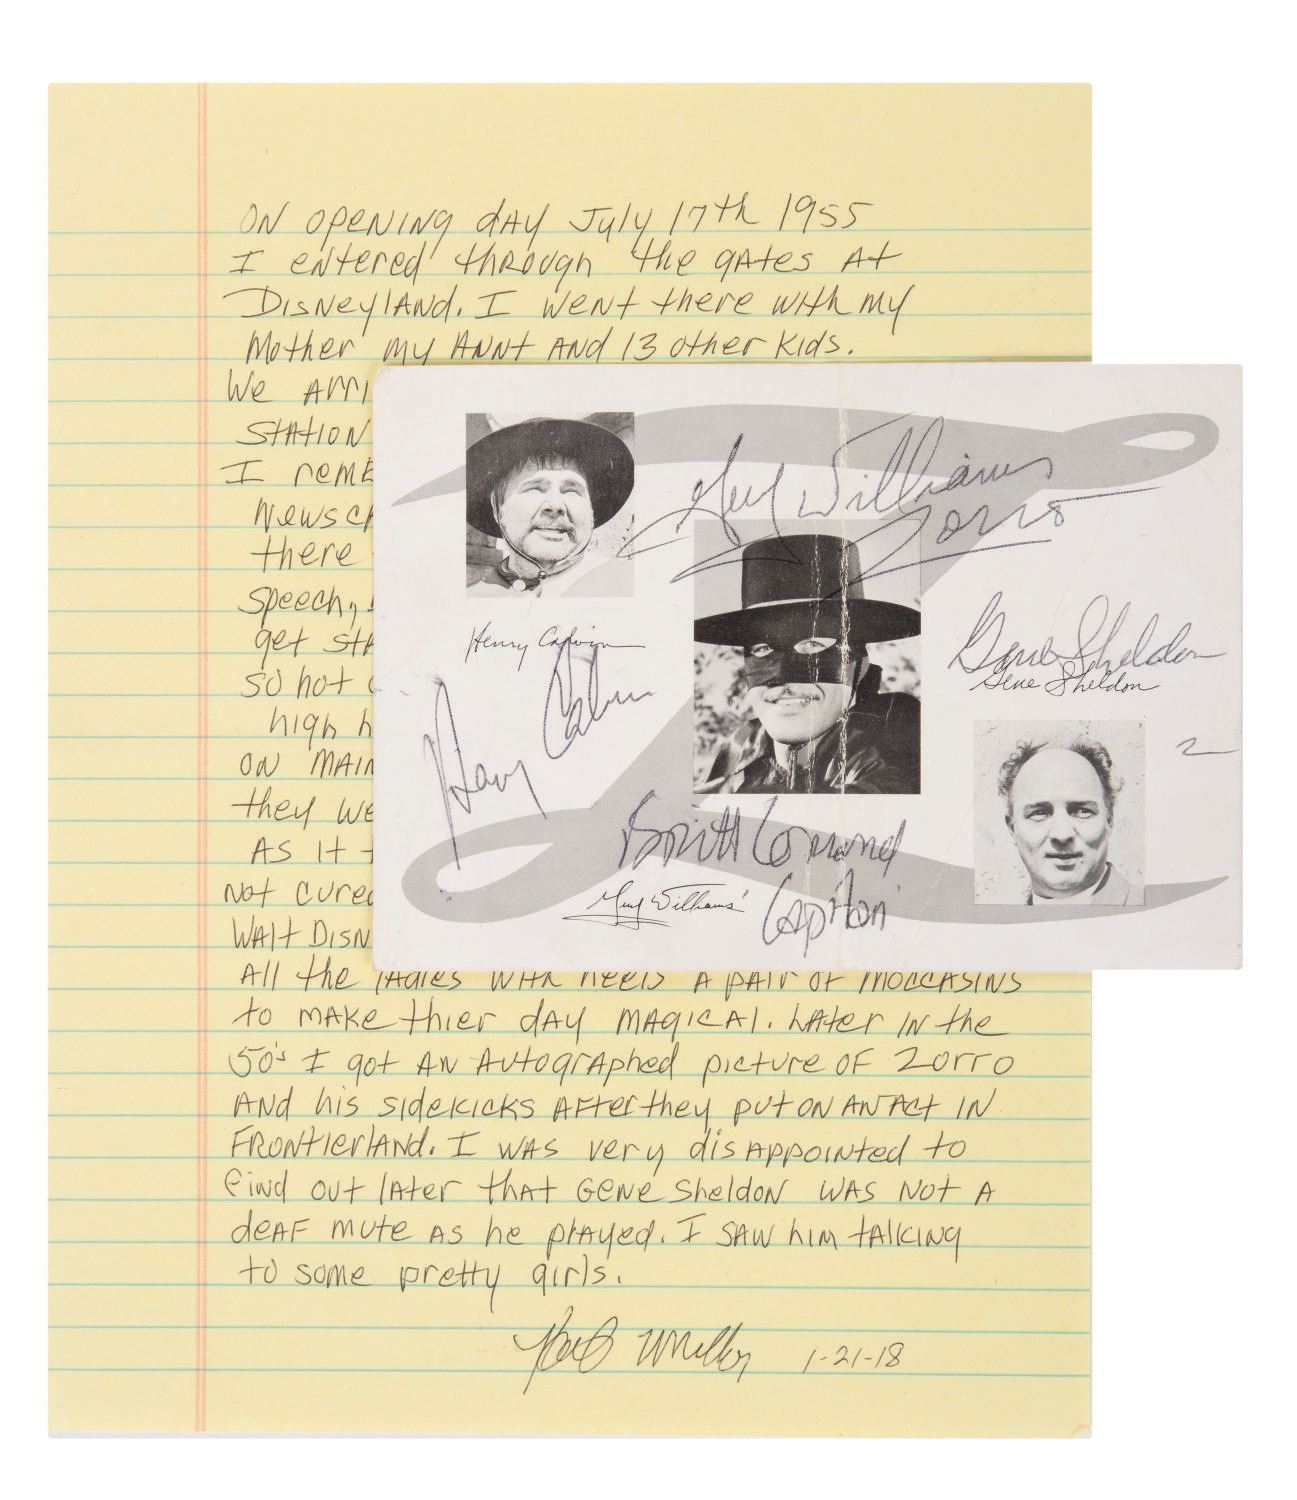 ON OPENING DAY July 17th 1955
I entered through the gates at
Disneyland. I went there with my
Mother my Aunt and 13 other kids.
We arri
Station
I reme
Newsc
there
speech,
get sta
so hot
high h
on Main
they we
As it
Not cured
Walt Disn
All the ladies with heels a pair of moccasins
to make thier day magical. Later in the
50's I got an autographed picture of Zorro
and his sidekicks after they put on an act in
Frontierland. I was very disappointed to
find out later that Gene Sheldon was not a
deaf mute as he played. I saw him talking
to some pretty girls.
1-21-18
Guy Williams
Zorro
Henry Calvin
Henry Calvin
Gene Sheldon
Gene Sheldon
Britt Lomond
Capitan
Guy Williams